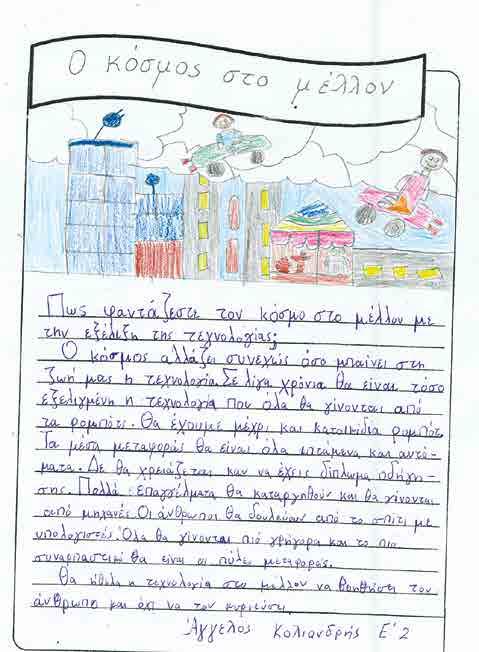 Ο κόσμος στο μέλλον
Πως φαντάζεστε τον κόσμο στο μέλλον με
την εξέλιξη της τεχνολογίας;
Ο κόσμος αλλάζει συνεχώς όσο μπαίνει στη
ζωή μας η τεχνολογία. Σε λίγα χρόνια θα είναι τόσο
εξελιγμένη η τεχνολογία που όλα θα γίνονται από
τα ρομπότ. Θα έχουμε μέχρι και κατοικίδια ρομπότ.
Τα μέσα μεταφοράς θα είναι όλα ιπτάμενα και αυτό-
ματα. Δε θα χρειάζεται καν να έχεις δίπλωμα οδήγη-
σης. Πολλά επαγγέλματα θα καταργηθούν και θα γίνονται
από μηχανές. Οι άνθρωποι θα δουλεύουν από το σπίτι με
υπολογιστές. Όλα θα γίνονται πιο γρήγορα και το πιο
συναρπαστικό θα είναι οι πύλες μεταφοράς.
Θα ήθελα η τεχνολογία στο μέλλον να βοηθήσει τον
άνθρωπο και όχι να τον κυριεύσει.
Άγγελος Κολιανδρής Ε΄2